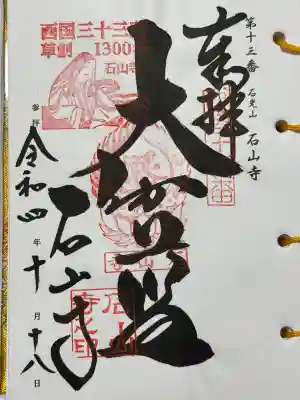 第十三番 石光山 石山寺
奉拝
大伽藍
石山寺
参拝
令和四年十月十八日
西国三十三所
草創1300年
石山寺
石山
寺之印